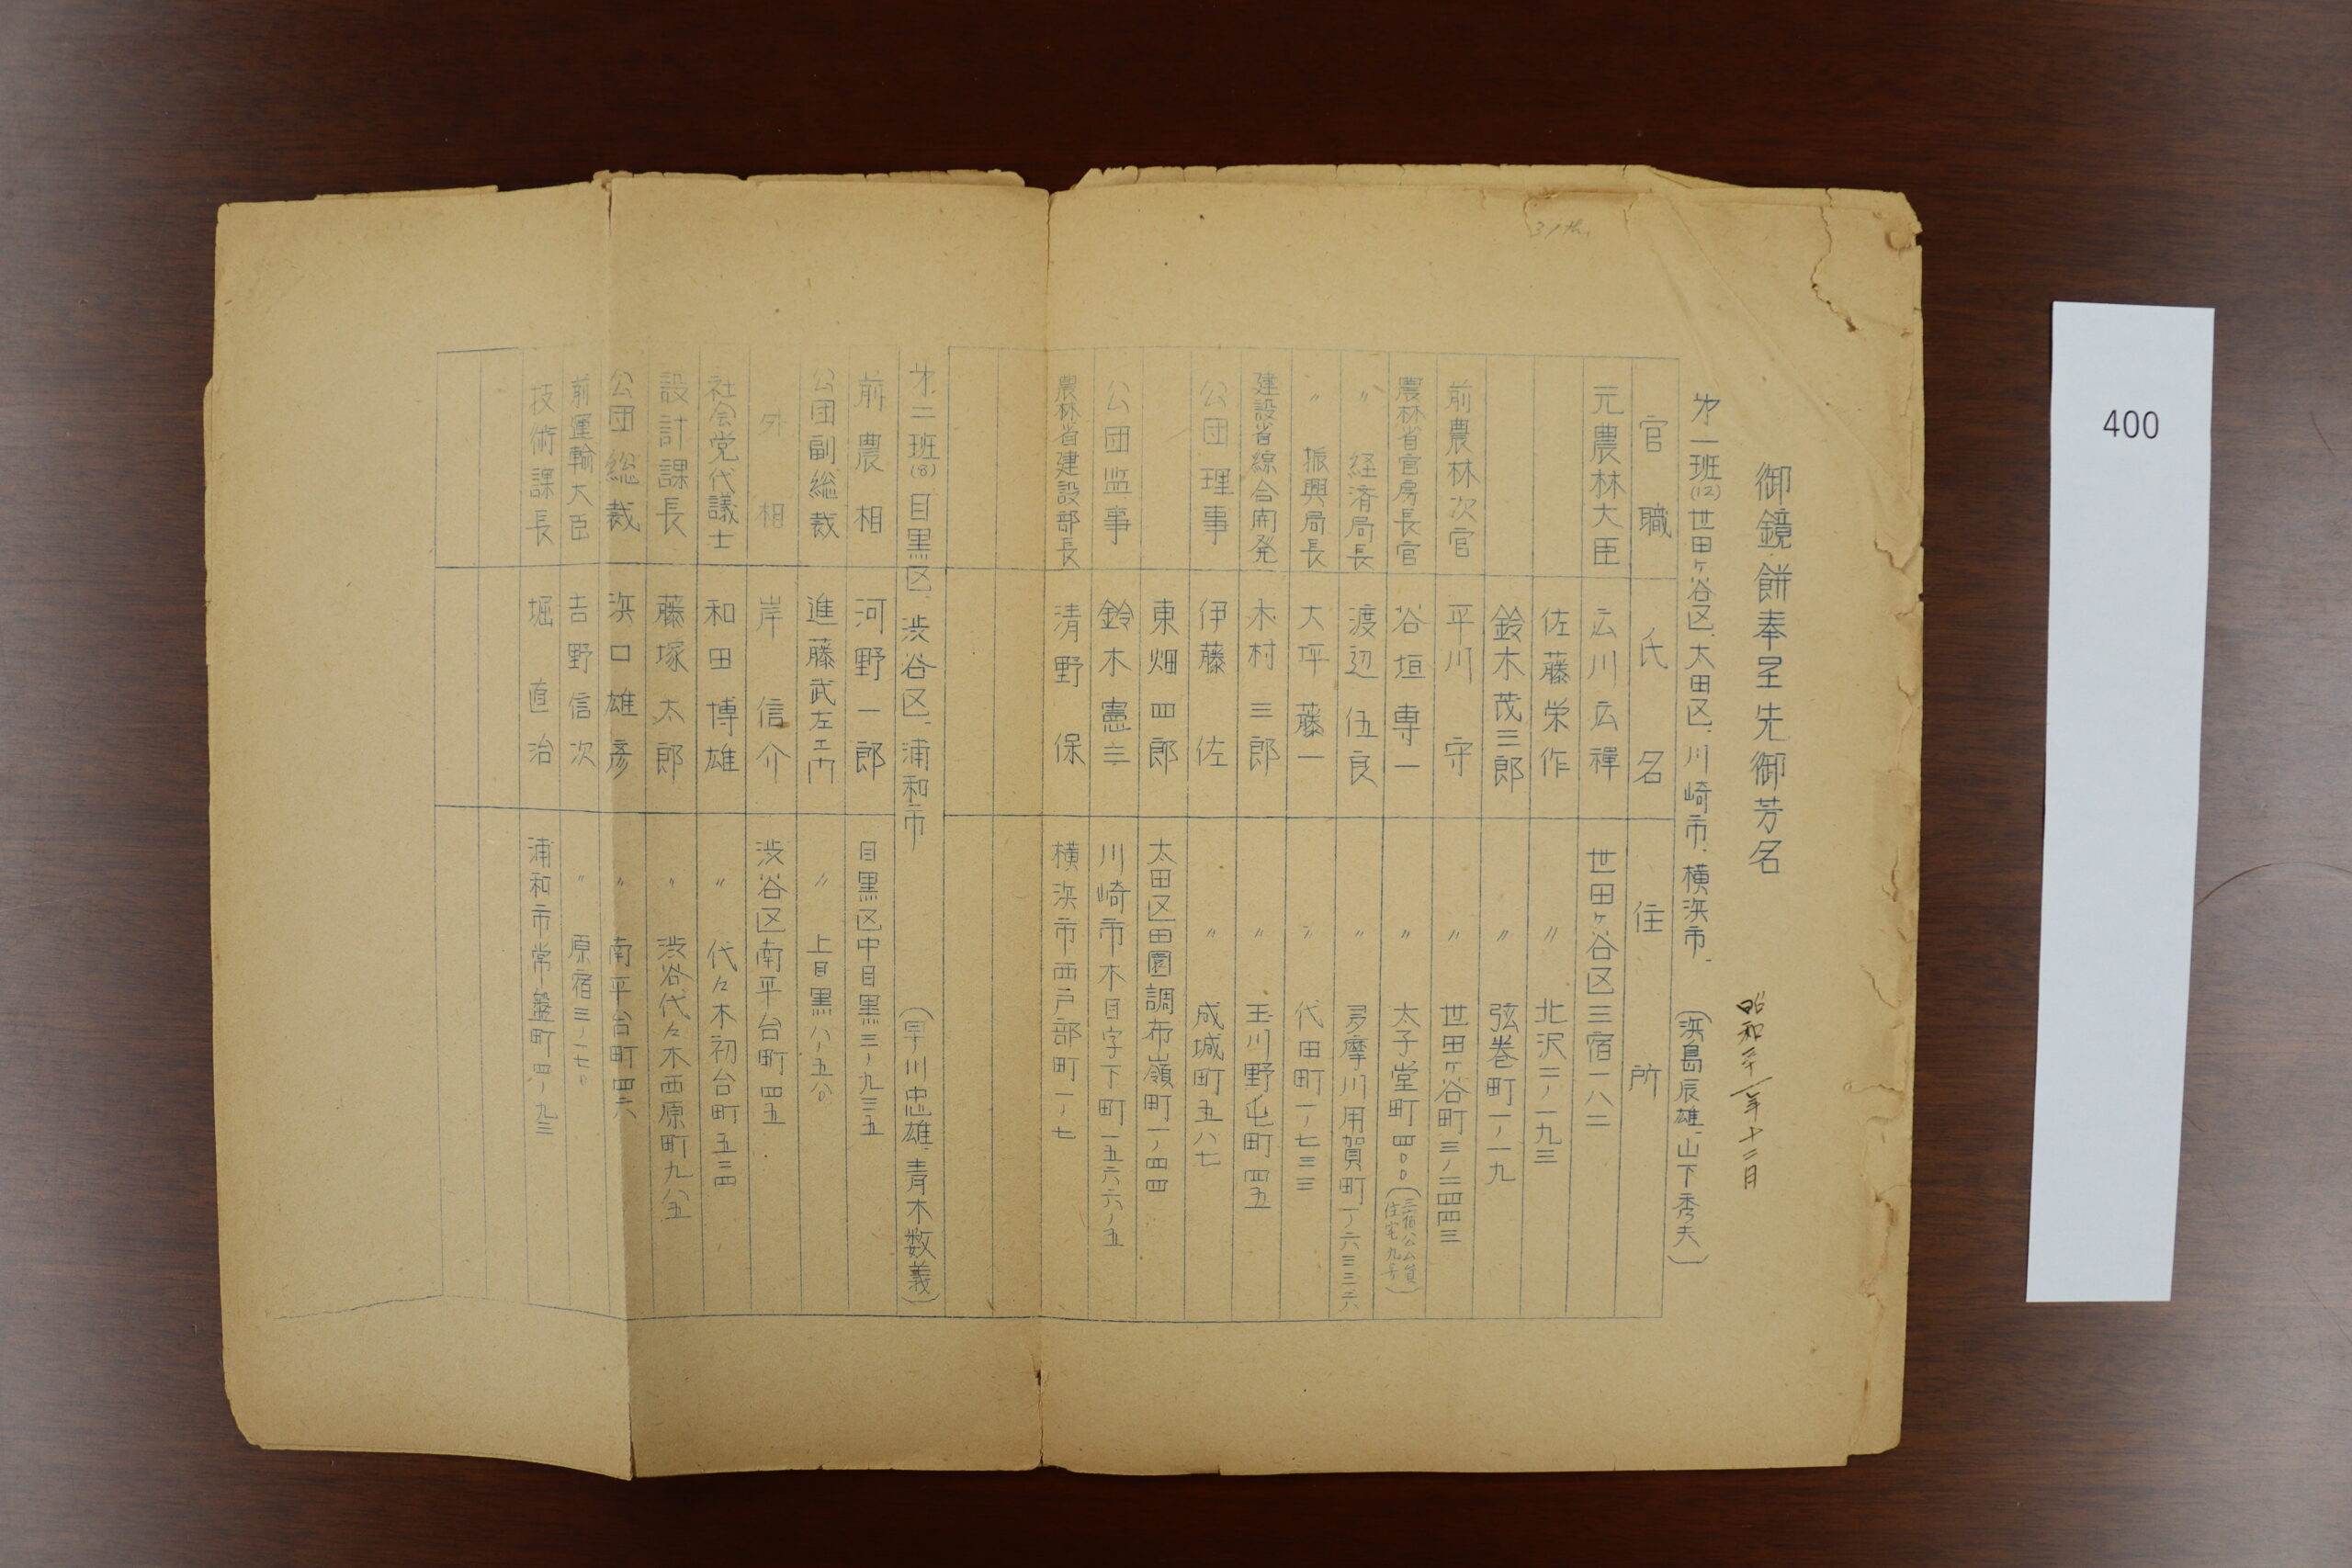 御鏡餅奉呈先御芳名
昭和三十一年十二月
才一班(12)世田ヶ谷区、大田区、川崎市、横浜市、(浜島辰雄、山下秀夫)
官職 氏名 住所
元農林大臣 広川広禅 世田ヶ谷区三宿一八二
佐藤栄作 〃 北沢三ノ一九三
鈴木茂三郎 〃 弦巻町一ノ一九
前農林次官 平川守 〃 世田ヶ谷町三ノ二四四三
農林省官房長官 谷垣専一 〃 太子堂町四〇〇(三宿公ム員住宅九号)
〃 経済局長 渡辺伍良 〃 多摩川用賀町一ノ六三三六
〃 振興局長 大坪藤一 〃 代田町一ノ七三三
建設省綜合開発 木村三郎 〃 玉川野毛町四五
公団理事 伊藤佐 〃 成城町五八七
東畑四郎 太田区田園調布嶺町一ノ四四
公団監事 鈴木憲三 川崎市木月字下町一五六六ノ五
農林省建設部長 清野保 横浜市西戸部町一ノ七
才二班(8)目黒区、渋谷区、浦和市 (早川忠雄、青木数義)
前農相 河野一郎 目黒区中目黒三ノ九三五
公団副総裁 進藤武左エ門 〃 上目黒八ノ五〇
外相 岸信介 渋谷区南平台町四五
社会党代議士 和田博雄 〃 代々木初台町五三四
設計課長 藤塚太郎 〃 渋谷代々木西原町九八五
公団総裁 浜口雄彦 〃 南平台町四六
前運輸大臣 吉野信次 〃 原宿三ノ一七〇
技術課長 堀直治 浦和市常盤町四ノ九三
31th.
400